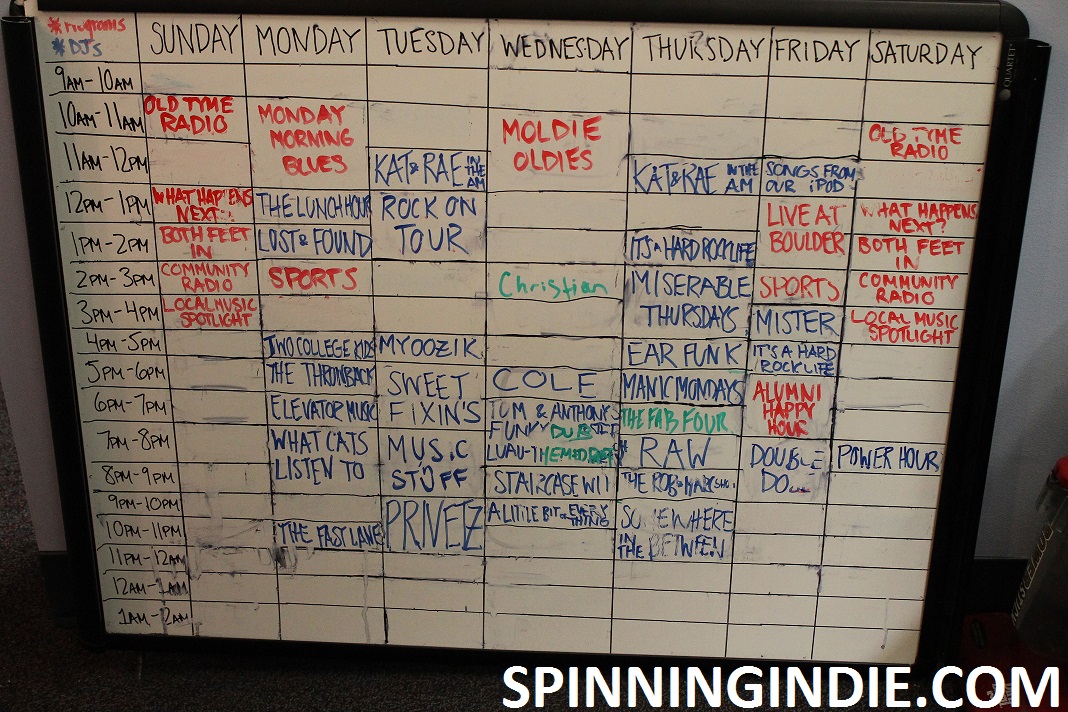 *PROGRAMS
*DJ'S
SUNDAY MONDAY TUESDAY WEDNESDAY THURSDAY FRIDAY SATURDAY
9AM-10AM
10AM-11AM
OLD TYME
RADIO
MONDAY
MORNING
BLUES
MOLDIE
OLDIES
OLD TYME
RADIO
11AM-12PM
KAT & RAE IN THE AM
KAT & RAE IN THE AM
SONGS FROM
OUR iPOD
12PM-1PM
WHAT HAP'ENS
NEXT
THE LUNCH HOUR
ROCK ON
TOUR
LIVE AT
BOULDER
WHAT HAPPENS
NEXT?
1PM-2PM
BOTH FEET
IN
LOST & FOUND
IT'S A HARD ROCK LIFE
BOTH FEET
IN
2PM-3PM
COMMUNITY
RADIO
SPORTS
Christian
MISERABLE
THURSDAYS
SPORTS
COMMUNITY
RADIO
3PM-4PM
LOCAL MUSIC
SPOTLIGHT
MISTER
LOCAL MUSIC
SPOTLIGHT
4PM-5PM
TWO COLLEGE KIDS
MYOOZIK
EAR FUNK
IT'S A HARD
ROCK LIFE
5PM-6PM
THE THROWBACK
SWEET
FIXIN'S
COLE
MANIC MONDAYS
ALUMNI
HAPPY
HOUR
6PM-7PM
ELEVATOR MUSIC
TOM & ANTHONY'S
FUNKY DUB
LUAU-TH
THE FAB FOUR
7PM-8PM
WHAT CATS
LISTEN TO
MUSIC
STÜFF
RAW
DOUBLE
DO
POWER HOUR
8PM-9PM
STAIRCASE WIT
THE ROB & MARC SHO
9PM-10PM
PRIVETZ
A LITTLE BIT OF EVERYTHING
SOMEWHERE
IN THE BETWEEN
10PM-11PM
THE FAST LANE
11PM-12AM
12AM-1AM
1AM-2AM
QUARTET
SPINNINGINDIE.COM